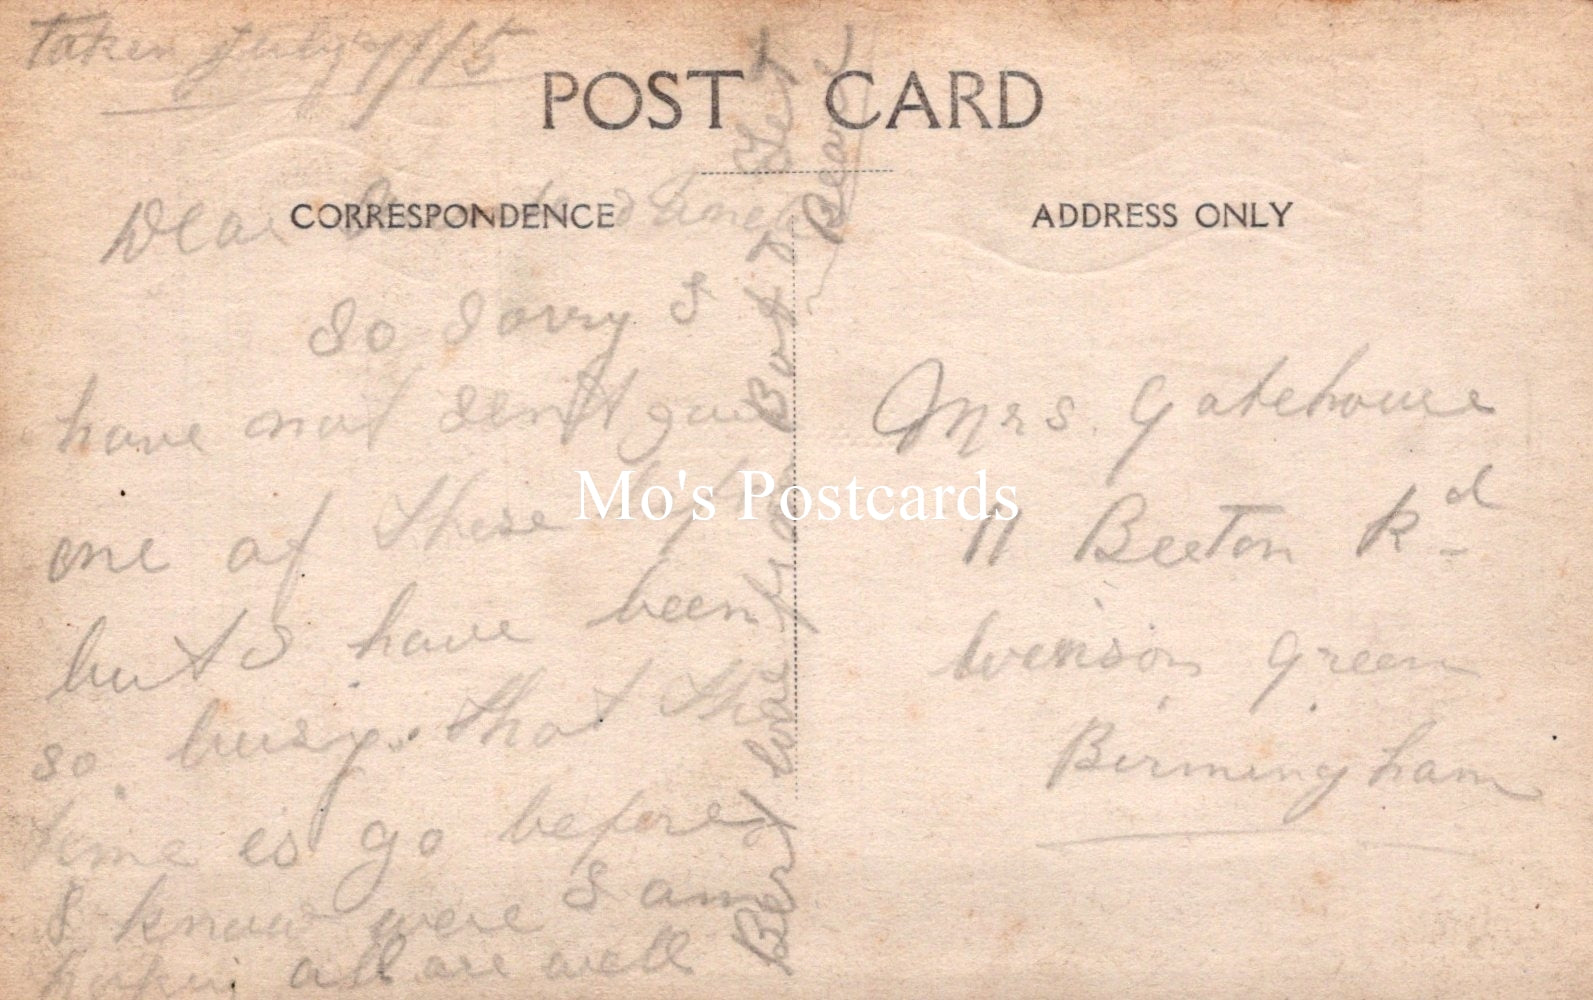 Taken July 4/15
POST CARD
CORRESPONDENCE
ADDRESS ONLY
Dear
So Sorry I
have not sent you
one of these
but I have been
so busy. that the
time is go before
I know were I am
hoping all are well
Bert
But
Mrs. Gatehouse
11 Beeton Rd
Winson Green
Birmingham
Mo's Postcards